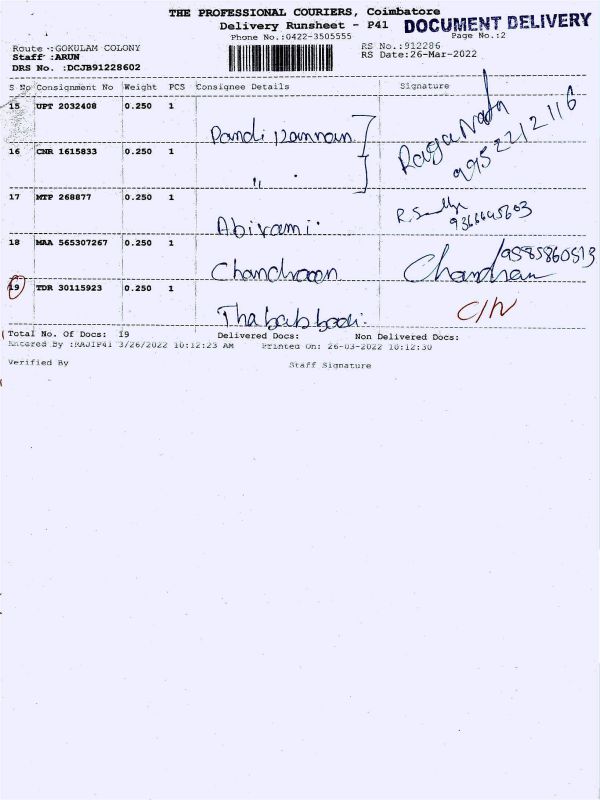 THE PROFESSIONAL COURIERS, Coimbatore
Delivery Runsheet - P41
DOCUMENT DELIVERY
Phone No.:0422-3505555
Page No.:2
Route :GOKULAM COLONY
RS No.:912286
Staff :ARUN
RS Date:26-Mar-2022
DRS No. :DCJB91228602
S No Consignment No Weight PCS Consignee Details Signature
15 UPT 2032408 0.250 1
16 CNR 1615833 0.250 1
"
17 MTP 268877 0.250 1
Abirami.
18 MAA 565307267 0.250 1
Chandran Chandran
19 TDR 30115923 0.250 1
C/N
Total No. Of Docs: 19 Delivered Docs: Non Delivered Docs:
Entered By :RAJIP41 3/26/2022 10:12:23 AM Printed On: 26-03-2022 10:12:30
Verified By Staff Signature